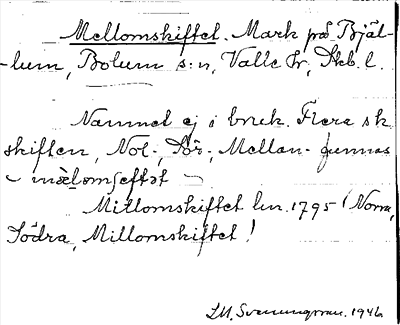 Mellomskiftet. Mark på Bjäl-
-lum, Bolum s:n, Valle hr, Skb. l.
Namnet ej i bruk. Flera sk
skiften, Nol-, Sör-, Mellan- finnas
Millomskiftet lm. 1795 (Norra,
Södra, Millomskiftet!
1946